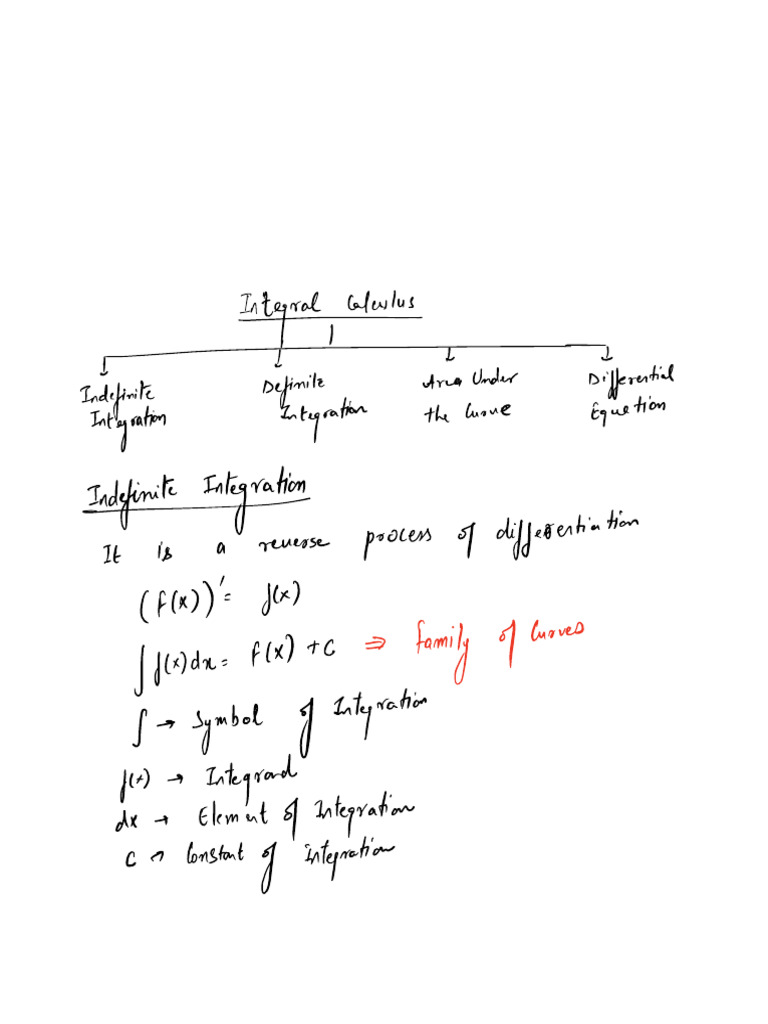 Integral Calculus
Indefinite Integration
Definite Integration
Area Under the Curve
Differential Equation
Indefinite Integration
It is a reverse process of differentiation
(F(x))' = f(x)
∫f(x)dx = F(x) + C ⇒ Family of Curves
∫ → Symbol of Integration
f(x) → Integrand
dx → Element of Integration
C → Constant of Integration